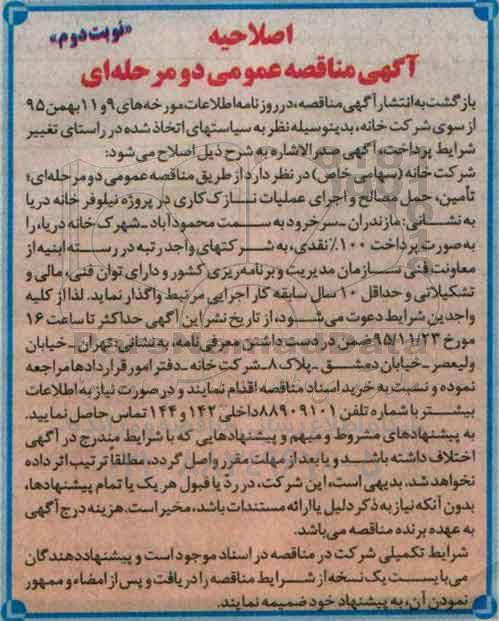 «نوبت دوم»
اصلاحیه
آگهی مناقصه عمومی دو مرحله‌ای
بازگشت به انتشار آگهی مناقصه، در روزنامه اطلاعات مورخه‌های ۹ و ۱۱ بهمن ۹۵
از سوی شرکت خانه، بدینوسیله نظر به سیاستهای اتخاذ شده در راستای تغییر
شرایط پرداخت، آگهی صدرالاشاره به شرح ذیل اصلاح می‌شود:
شرکت خانه (سهامی خاص) در نظر دارد از طریق مناقصه عمومی دو مرحله‌ای؛
تأمین، حمل مصالح و اجرای عملیات نازک‌کاری در پروژه نیلوفر خانه دریا
به نشانی: مازندران ـ سرخرود به سمت محمودآباد ـ شهرک خانه دریا، را
به صورت پرداخت ۱۰۰٪ نقدی، به شرکتهای واجد رتبه در رسته ابنیه از
معاونت فنی سازمان مدیریت و برنامه‌ریزی کشور و دارای توان فنی، مالی و
تشکیلاتی و حداقل ۱۰ سال سابقه کار اجرایی مرتبط واگذار نماید. لذا از کلیه
واجدین شرایط دعوت می‌شود، از تاریخ نشر این آگهی حداکثر تا ساعت ۱۶
مورخ ۹۵/۱۱/۲۳ ضمن در دست داشتن معرفی‌نامه، به نشانی: تهران ـ خیابان
ولیعصر ـ خیابان دمشق ـ پلاک ۸ ـ شرکت خانه ـ دفتر امور قراردادها مراجعه
نموده و نسبت به خرید اسناد مناقصه اقدام نمایند و در صورت نیاز به اطلاعات
بیشتر با شماره تلفن ۸۸۹۰۹۱۰۱ داخلی ۱۴۲ و ۱۴۴ تماس حاصل نمایید.
به پیشنهادهای مشروط و مبهم و پیشنهادهایی که با شرایط مندرج در آگهی
اختلاف داشته باشد و یا بعد از مهلت مقرر واصل گردد، مطلقا ترتیب اثر داده
نخواهد شد. بدیهی است، این شرکت، در ردّ یا قبول هر یک یا تمام پیشنهادها،
بدون آنکه نیاز به ذکر دلیل یا ارائه مستندات باشد، مخیر است. هزینه درج آگهی
به عهده برنده مناقصه می‌باشد.
شرایط تکمیلی شرکت در مناقصه در اسناد موجود است و پیشنهاددهندگان
می‌بایست یک نسخه از شرایط مناقصه را دریافت و پس از امضاء و ممهور
نمودن آن، به پیشنهاد خود ضمیمه نمایند.